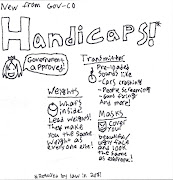 New from Gov-Co
Handicaps!
Government
approved!
Tranzmitter
Pre-loaded
Sounds like
-Cars crashing
-People Screaming
-Guns firing
And more!
Weights
What's
inside?
Lead weights!
They make
you the same
weight as
everyone else!
Masks
Cover
Your
beautiful/
ugly face
and look
the same
as everyone!
*Required by law in 2081